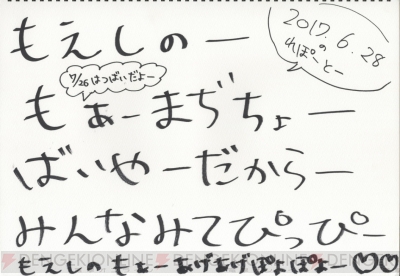 もえしのー
2017.6.28
のれぽーとー
7/26はつばいだよー
もぁーまぢちょー
ばいやーだからー
みんなみてぴっぴー
もえしのもぉーあげあげぽよぽよー♡♡
DENGEKIONLINE DENGEKIONLINE DENGEKIONLINE